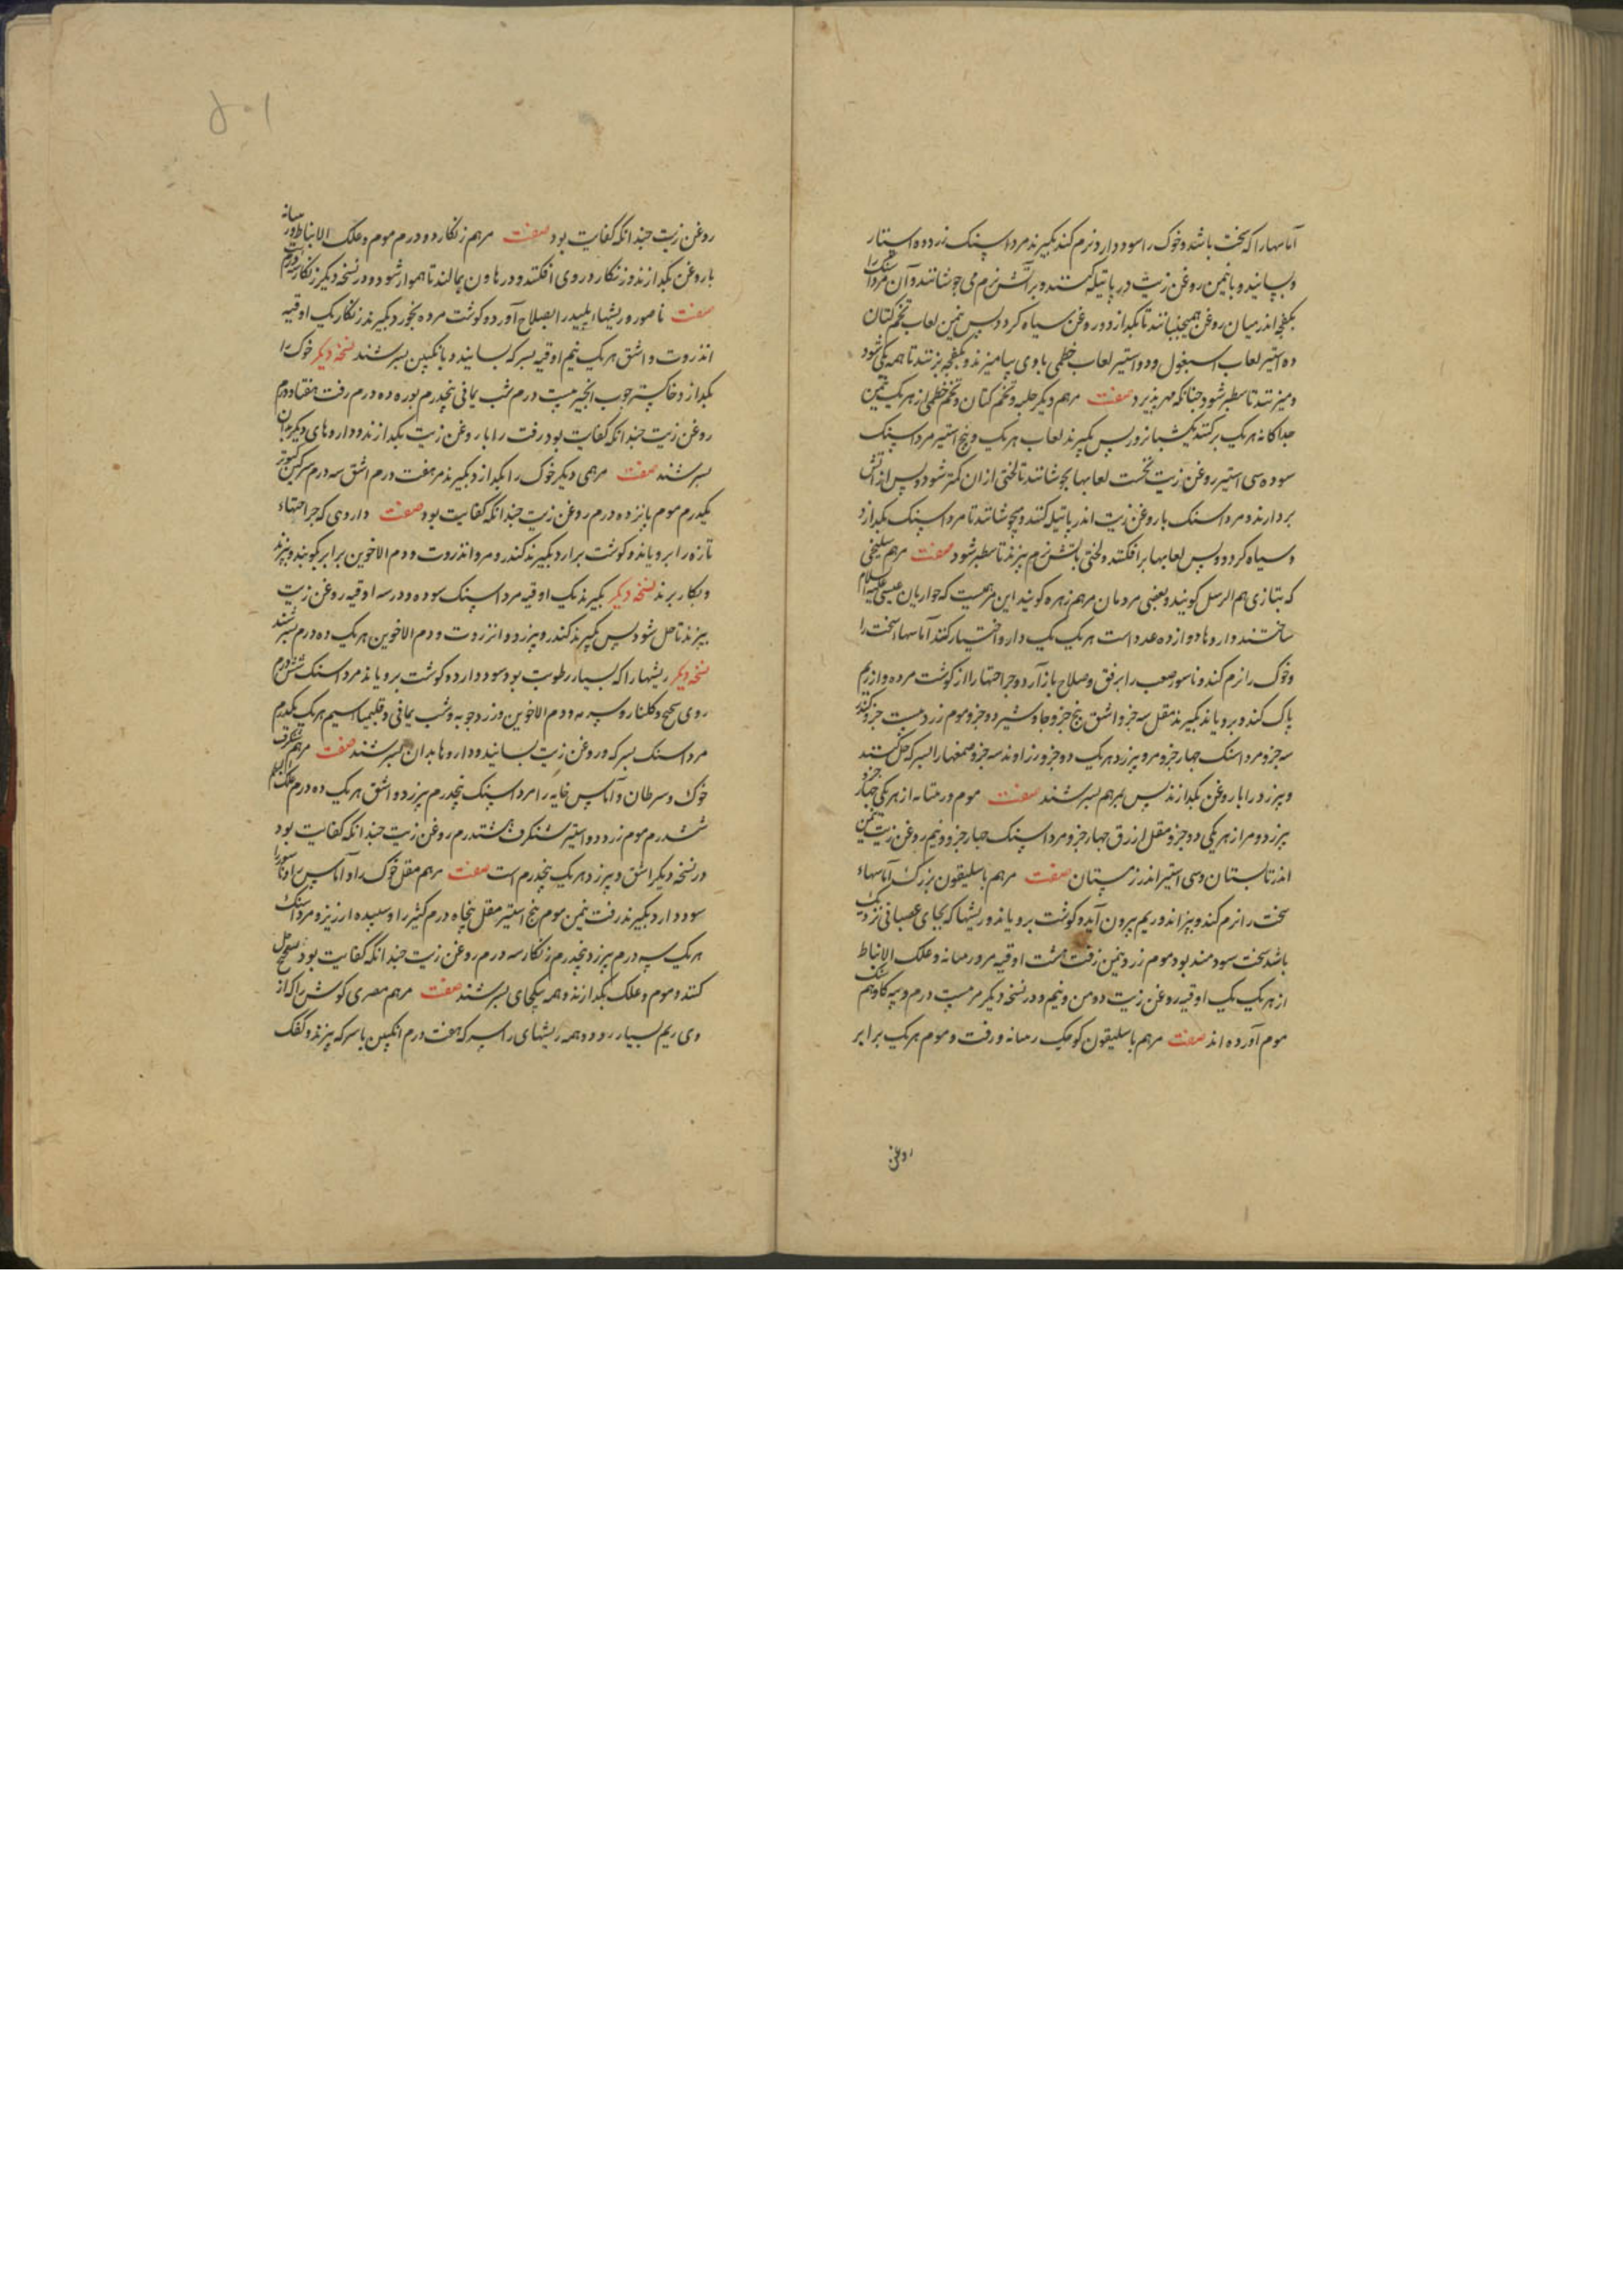 آماسها را که سخت باشد و خوک را سود دارد و نرم کند بکیرند مرداسنک زرد ده استار
و بسایند و با نیمن روغن زیت در پاتیله کنند و بر آتش نرم می جوشانند و آن مرداسنک را
بکفچه اندر میان روغن همیجنبانند تا بکدازد و روغن سیاه کردد پس نیمن لعاب تخم کتان
ده استیر لعاب اسبغول و دو استیر لعاب خطمی با وی بیامیزند و بکفچه بزنند تا همه یکی شود
و میزنند تا سطبر شود چنانکه مهر پذیرد صفت مرهم دیکر حلبه و تخم کتان و تخم خطمی از هر یک نیمن
جدا کانه هر یک بر کنند یکشبانروز پس بکیرند لعاب هر یک و پنج استیر مرداسنک
سوده سی استیر روغن زیت نخست لعابها بجوشانند تا لختی از ان کمتر شود و پس از آتش
بردارند و مرداسنک با روغن زیت اندر پاتیله کنند و میجوشانند تا مرداسنک بکدازد
و سیاه کردد و پس لعابها بر افکنند و لختی بآتش نرم بپزند تا سطبر شود صفت مرهم سلیخی
که بتازی هم الرسل کویند و بعضی مردمان مرهم زهره کویند این مرهمیست که حواریان عیسی علیه السلام
ساختند و داروها دوازده عدد است هر یک یک دارو اختیار کنند آماسها سخت را
و خوک را نرم کند و ناسور صعب را برفق و صلاح باز آرد و جراحتها را از کوشت مرده و از ریم
پاک کند و برویاند بکیرند مقل سه جزو اشق پنج جزو جاوشیر دو جزو موم زرد بیست جزو کندر
سه جزو مرداسنک چهار جزو مر و بیرزد هر یک دو جزو زراوند سه جزو صمغها را بسرکه حل کنند
و بیرزد را با روغن بکدازند پس بمرهم بسرشند صفت موم و رمیانه از هر یکی چهار جزو
بیرزد و مر از هر یکی دو جزو مقل ازرق چهار جزو مرداسنک چهار جزو و نیم روغن زیت نیمن
اندر تابستان و سی استیر اندر زمستان صفت مرهم باسلیقون بزرک آماسهاء
سخت را نرم کند و بپزاند و ریم بیرون آید و کوشت برویاند و ریشها که بجای عصبانی نزدیک
باشد سخت سودمند بود موم زرد نیمن زفت هشت اوقیه مر و رمیانه و علک الانباط
از هر یک یک اوقیه روغن زیت ده من و نیم و در نسخه دیکر مر بیست درم و پیه کاو هم سنک
موم آورده اند صفت مرهم باسلیقون کوچک رمیانه و زفت و موم هر یک برابر
روغن
۵۰۱
روغن زیت چندانکه کفایت بود صفت مرهم زنکار دو درم موم و علک الانباط و رمیانه
با روغن بکدازند و زنکار در وی افکنند و در هاون بمالند تا هموار شود و در نسخه دیکر زنکار سه درم است
صفت ناصور و ریشهاء پلید را بصلاح آورد و کوشت مرده بخورد بکیرند زنکار یک اوقیه
انذروت و اشق هر یک نیم اوقیه بسرکه بسایند و بانکبین بسرشند نسخه دیکر خوک را
بکدازد خاکستر چوب انجیر بیست درم شب یمانی پنجدرم بوره ده درم زفت هفتاد درم
روغن زیت چندانکه کفایت بود زفت را با روغن زیت بکدازند و داروهای دیکر بدان
بسرشند صفت مرهمی دیکر خوک را بکدازد بکیرند مر هفت درم اشق سه درم سرکین کبوتر
یکدرم موم پانزده درم روغن زیت چندانکه کفایت بود صفت داروی که جراحتهاء
تازه را برویاند و کوشت برارد بکیرند کندر و مر و انذروت و دم الاخوین برابر بکوبند و بپزند
و بکار برند نسخه دیکر بکیرند یک اوقیه مرداسنک سوده و در سه اوقیه روغن زیت
بپزند تا حل شود پس بکیرند کندر و بیرزد و انزروت و دم الاخوین هر یک ده درم بسرشند
نسخه دیکر ریشها را که بسیار رطوبت بود سود دارد و کوشت برویاند مرداسنک شش درم
روی سحج و کلنار و سرمه و دم الاخوین و زردچوبه و شب یمانی و قلیمیا سیم هر یک یکدرم
مرداسنک بسرکه و روغن زیت بسایند و داروها بدان بسرشند صفت مرهم شنکرف
خوک و سرطان و آماس خایه را مرداسنک پنجدرم بیرزد و اشق هر یک ده درم علک البطم
شش درم موم زرد دو استیر شنکرف هشتدرم روغن زیت چندانکه کفایت بود
در نسخه دیکر اشق و بیرزد هر یک پنجدرم است صفت مرهم مقل خوک را و آماس و ناسور را
سود دارد بکیرند زفت نیمن موم پنج استیر مقل پنجاه درم کثیرا و سپیده ارزیز و مرداسنک
هر یک سه درم بیرزد پنجدرم زنکار سه درم روغن زیت چندانکه کفایت بود سحج حل
کنند و موم و علک بکدازند و همه بیکجای بسرشند صفت مرهم مصری کوش را که از
وی ریم بسیار رود و همه ریشهای را سرکه هفت درم انکبین با سرکه بپزند و کفک